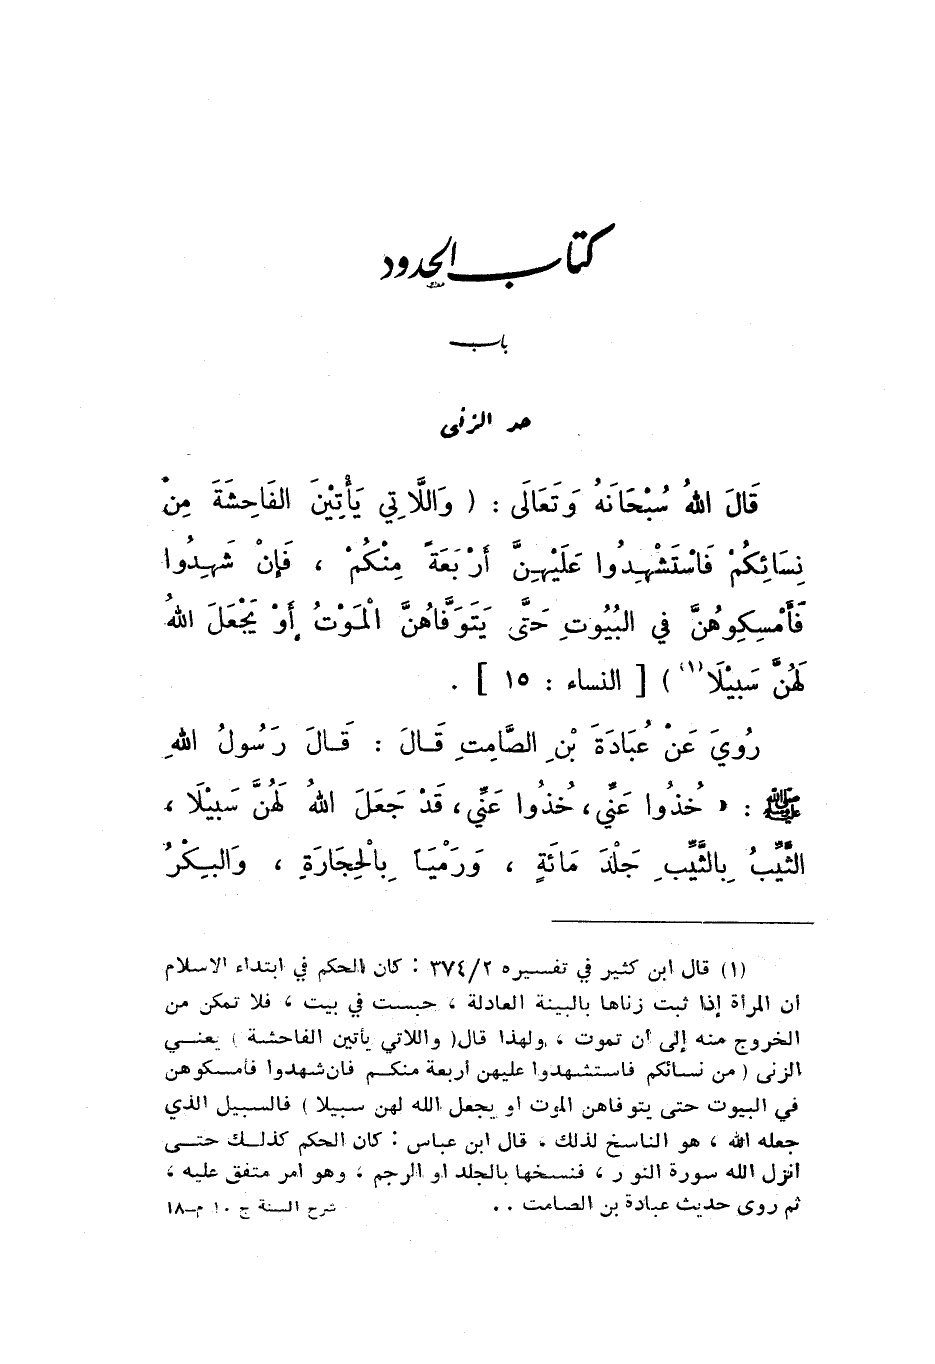 كتاب الحدود
باب
حد الزنى
قَالَ اللهُ سُبْحَانَهُ وَتَعَالَى : ( وَاللَّاتِي يَأْتِيْنَ الفَاحِشَةَ مِنْ
نِسَائِكُمْ فَاسْتَشْهِدُوا عَلَيْهِنَّ أَرْبَعَةً مِنْكُمْ ، فَإِنْ شَهِدُوا
فَأَمْسِكِوُهُنَّ في البُيُوتِ حَتَّى يَتَوَفَّاهُنَّ الْمَوْتُ أَوْ يَجْعَلَ اللهُ
لَهُنَّ سَبِيْلَا(١) ) [ النساء : ١٥ ] .
رُوِيَ عَنْ عُبَادَةَ بْنِ الصَّامِتِ قَالَ : قَالَ رَسُولُ اللهِ
ﷺ : « خُذُوا عَنِّي ، خُذُوا عَنِّي ، قَدْ جَعَلَ اللهُ لَهُنَّ سَبِيْلَا ،
الثَّيِّبُ بِالثَّيِّبِ جَلْدَ مَائَةٍ ، وَرَمْيَاً بِالْحِجَارَةِ ، وَالبِكْرُ
(١) قال ابن كثير في تفسيره ٣٧٤/٢ : كان الحكم في ابتداء الاسلام
أن المرأة إذا ثبت زناها بالبينة العادلة ، حبست في بيت ، فلا تمكن من
الخروج منه إلى أن تموت ، ولهذا قال( واللاتي يأتين الفاحشة ) يعني
الزنى ( من نسائكم فاستشهدوا عليهن أربعة منكم فان شهدوا فأمسكوهن
في البيوت حتى يتوفاهن الموت او يجعل الله لهن سبيلا ) فالسبيل الذي
جعله الله ، هو الناسخ لذلك ، قال ابن عباس : كان الحكم كذلك حتى
انزل الله سورة النور ، فنسخها بالجلد او الرجم ، وهو امر متفق عليه ،
ثم روى حديث عبادة بن الصامت . . شرح السنة ج ١٠ م–١٨